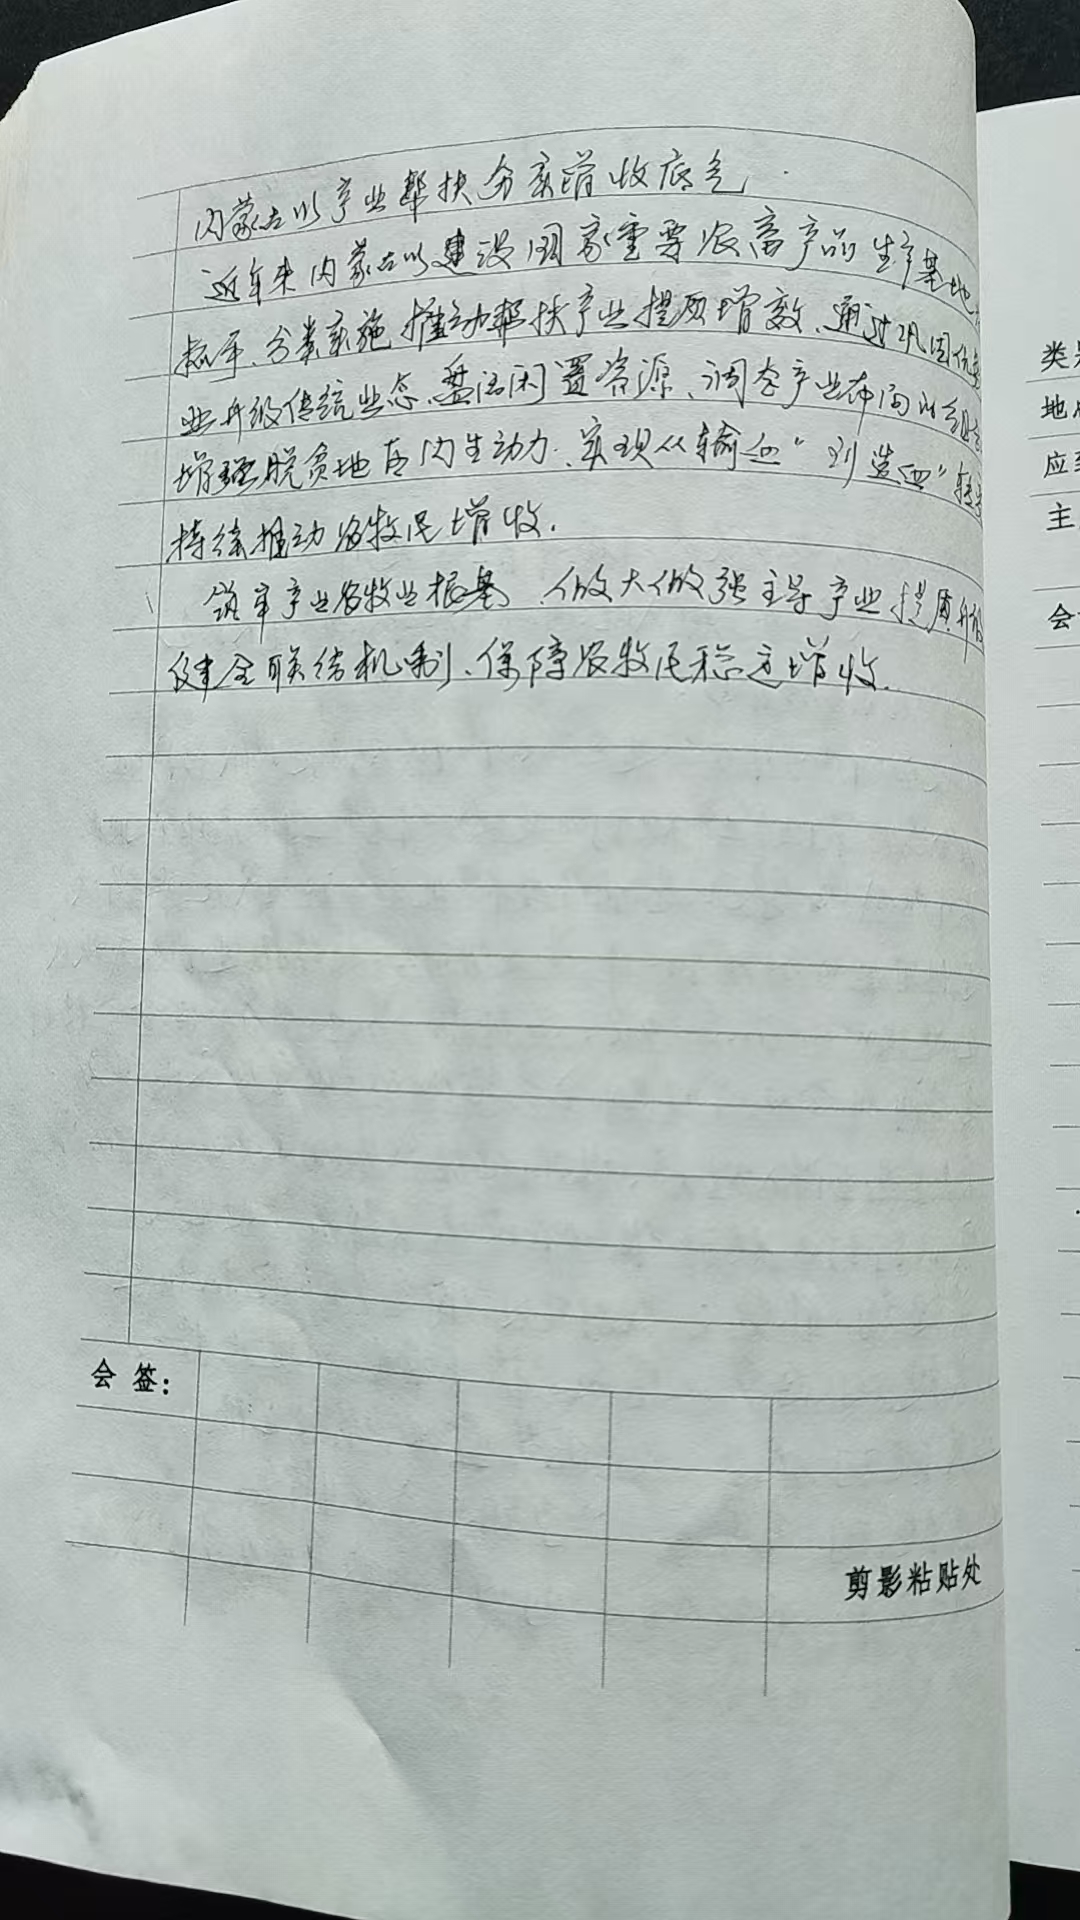 内蒙古以产业帮扶夯实增收底气
近年来内蒙古以建设国家重要农畜产品生产基地为
抓手、分类实施推动帮扶产业提质增效、通过巩固优势
业升级传统业态、盘活闲置资源、调整产业布局
增强脱贫地区内生动力、实现从输血”到造血”转
持续推动农牧民增收.
筑牢产业农牧业根基、做大做强主导产业提质升级
健全联结机制、保障农牧民稳定增收.
会签:
剪影粘贴处
类
地
应
主
会